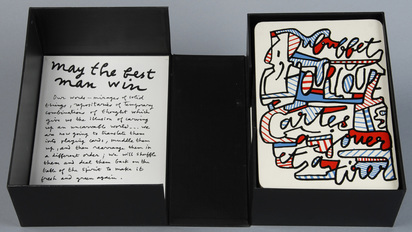 may the best
man win
Our words – mirages of solid
things, repositories of temporary
combinations of thought which
give us the illusion of carving
up an uncarvable world... we
are now going to translate them
into playing cards, muddle them
up, and then rearrange them in
a different order; we will shuffle
them and deal them back on the
table of the Spirit to make it
fresh and green again.
Dubuffet
Banque
Cartes
à jouer
et à tirer